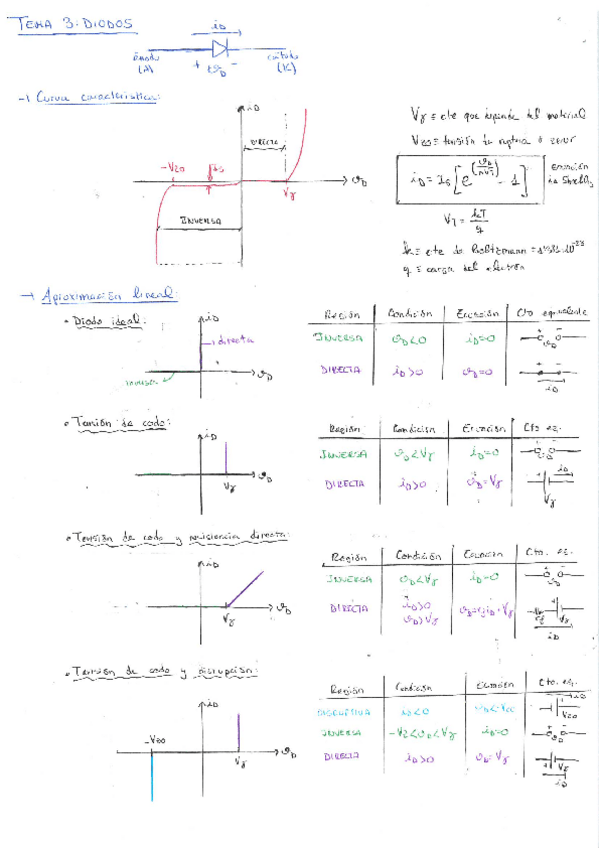 TEMA 3: DIODOS
iD
ánodo (A)
+ vD -
cátodo (K)
→ Curva característica:
iD
DIRECTA
-Vzo
Is
Vγ
vD
INVERSA
Vγ ≡ cte que depende del material
Vzo ≡ tensión de ruptura o zener
iD = Is [e^(vD/nVT) - 1]
Ecuación de Shockley
VT = kT/q
k ≡ cte de Boltzmann
q ≡ carga del electrón
→ Aproximación lineal:
• Diodo ideal:
iD
directa
inversa
vD
Región Condición Ecuación Cto equivalente
INVERSA vD<0 iD=0 vD
DIRECTA iD>0 vD=0 iD
• Tensión de codo:
iD
Vγ
vD
Región Condición Ecuación Cto eq.
INVERSA vD<Vγ iD=0 vD
DIRECTA iD>0 vD=Vγ iD
Vγ
• Tensión de codo y resistencia directa:
iD
Vγ
vD
Región Condición Ecuación Cto. eq.
INVERSA vD<Vγ iD=0 vD
DIRECTA iD>0
vD>Vγ
iD
• Tensión de codo y disrupción:
iD
-Vzo
Vγ
vD
Región Condición Ecuación Cto. eq.
DISRUPTIVA iD<0 iD
Vzo
INVERSA -Vz<vD<Vγ iD=0 vD
DIRECTA iD>0 vD=Vγ Vγ
iD